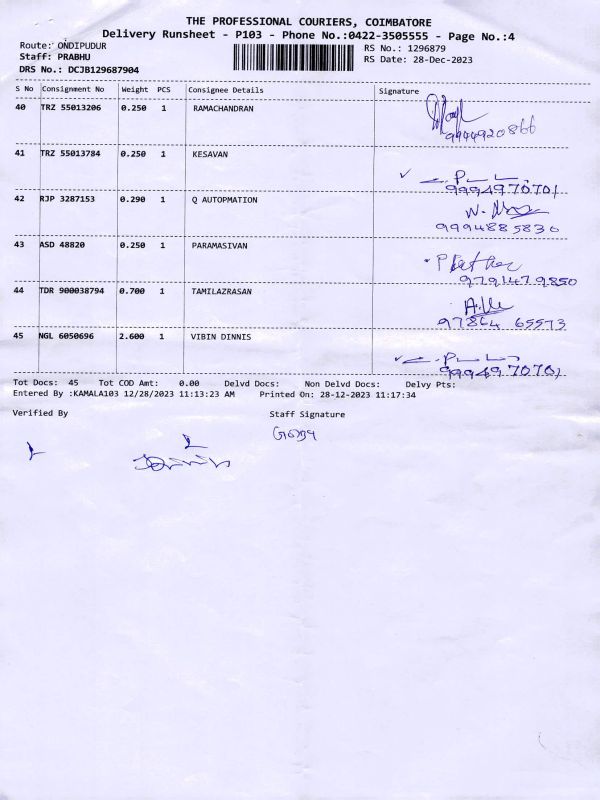 THE PROFESSIONAL COURIERS, COIMBATORE
Delivery Runsheet - P103 - Phone No.:0422-3505555 - Page No.:4
Route: ONDIPUDUR RS No.: 1296879
Staff: PRABHU RS Date: 28-Dec-2023
DRS No.: DCJB129687904
S No Consignment No Weight PCS Consignee Details Signature
40 TRZ 55013206 0.250 1 RAMACHANDRAN
9944920866
41 TRZ 55013784 0.250 1 KESAVAN
9994970701
42 RJP 3287153 0.290 1 Q AUTOPMATION
9994885830
43 ASD 48820 0.250 1 PARAMASIVAN
9791479850
44 TDR 900038794 0.700 1 TAMILAZRASAN
97864 65573
45 NGL 6050696 2.600 1 VIBIN DINNIS
9994970701
Tot Docs: 45 Tot COD Amt: 0.00 Delvd Docs: Non Delvd Docs: Delvy Pts:
Entered By :KAMALA103 12/28/2023 11:13:23 AM Printed On: 28-12-2023 11:17:34
Verified By Staff Signature